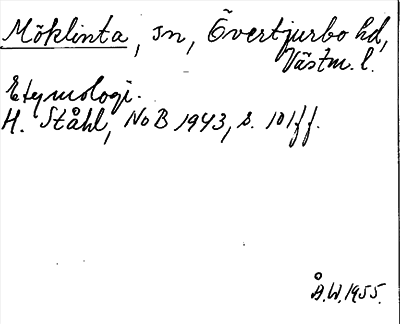 Möklinta, sn, Övertjurbo hd,
Västm. l.
Etymologi.
H. Ståhl, NoB 1943, s. 101ff.
Å.W. 1955.